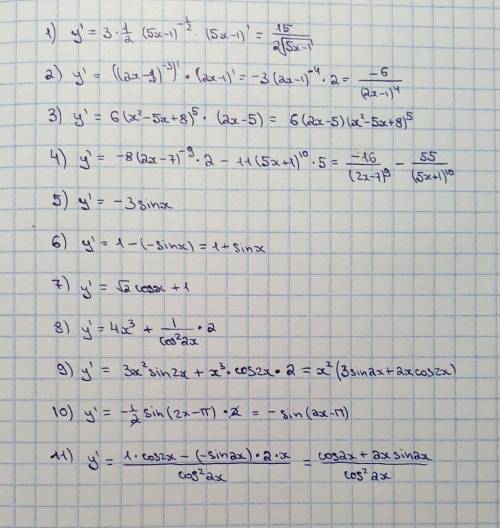 1) y' = 3 · 1/2 (5x-1)^(-1/2) · (5x-1)' = 15/(2√(5x-1))
2) y' = ((2x-1)^(-3))' · (2x-1)' = -3(2x-1)^(-4) · 2 = -6/(2x-1)^4
3) y' = 6(x²-5x+8)^5 · (2x-5) = 6(2x-5)(x²-5x+8)^5
4) y' = -8(2x-7)^(-9) · 2 - 11(5x+1)^10 · 5 = -16/(2x-7)^9 - 55/(5x+1)^10
5) y' = -3sinx
6) y' = 1-(-sinx) = 1+sinx
7) y' = √2 cosx + 1
8) y' = 4x³ + 1/cos²2x · 2
9) y' = 3x² sin2x + x³ · cos2x · 2 = x²(3sin2x + 2xcos2x)
10) y' = -1/2 sin(2x-π) · 2 = -sin(2x-π)
11) y' = (1 · cos2x - (-sin2x) · 2 · x)/cos²2x = (cos2x + 2x sin2x)/cos²2x